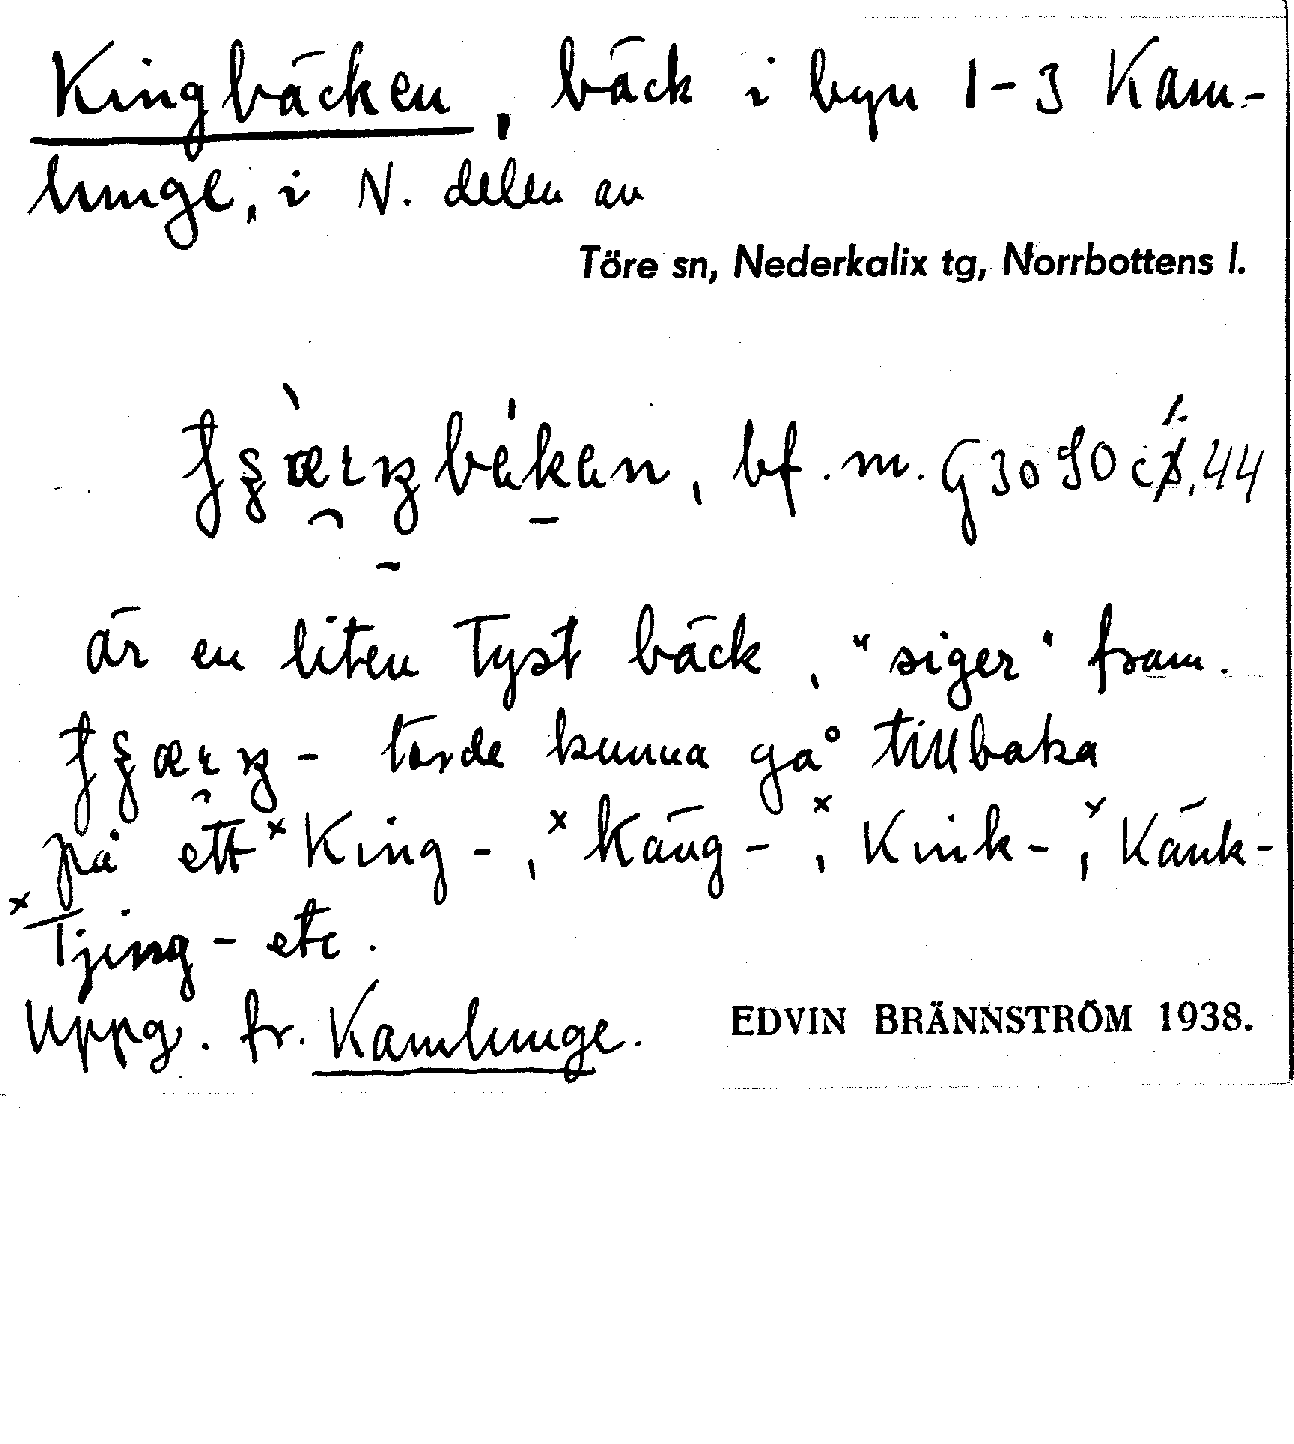 Kingbäcken, bäck i byn 1-3 Kam-
lunge, i N. delen av
Töre sn, Nederkalix tg, Norrbottens l.
bf. m. G 30 SO
är en liten tyst bäck, "siger" fram.
torde kunna gå tillbaka
på ett ×King-, ×Käng-, ×Kink-, ×Känk-
×Tjing- etc.
Uppg. fr. Kamlunge.
EDVIN BRÄNNSTRÖM 1938.